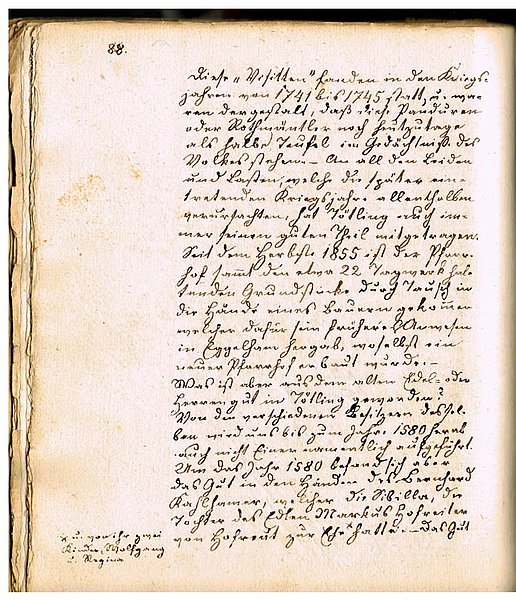 88.
Diese „Visitten" fanden in den Kriegs-
jahren von 1741 bis 1745 statt, u. wa-
ren dergestalt, daß diese Panduren
oder Rothmäntler noch heutzutage
als halbe Teufel im Gedächtniß des
Volkes stehen. – An all den Leiden
und Lasten, welche die später ein-
tretenden Kriegsjahre allenthalben
verursachten, hat Tötling auch im-
mer seinen guten Theil mitgetragen.
Seit dem Herbste 1855 ist der Pfarr-
hof sammt den etwa 22 Tagwerk hal-
tenden Grundstücke durch Tausch in
die Hände eines Bauern gekommen
welcher dafür sein früheres Anwesen
in Eggelham hergab, woselbst ein
neuer Pfarrhof erbaut wurde. –
Was ist aber aus dem alten Edel- oder
Herrengut in Tötling geworden?
Von den verschiedenen Besitzern dessel-
ben wird uns bis zum Jahre 1580 herab
auch nicht Einer namentlich aufgeführt.
Um das Jahr 1580 befand sich aber
das Gut in den Händen des Bernhard
Kaßhamer, welcher die Sibilla, die
Tochter des Edlen Markus Hofreiter
von Hofreut zur Ehe hatte. – Das Gut
x u. von ihr zwei
Kinder, Wolfgang
u. Regina